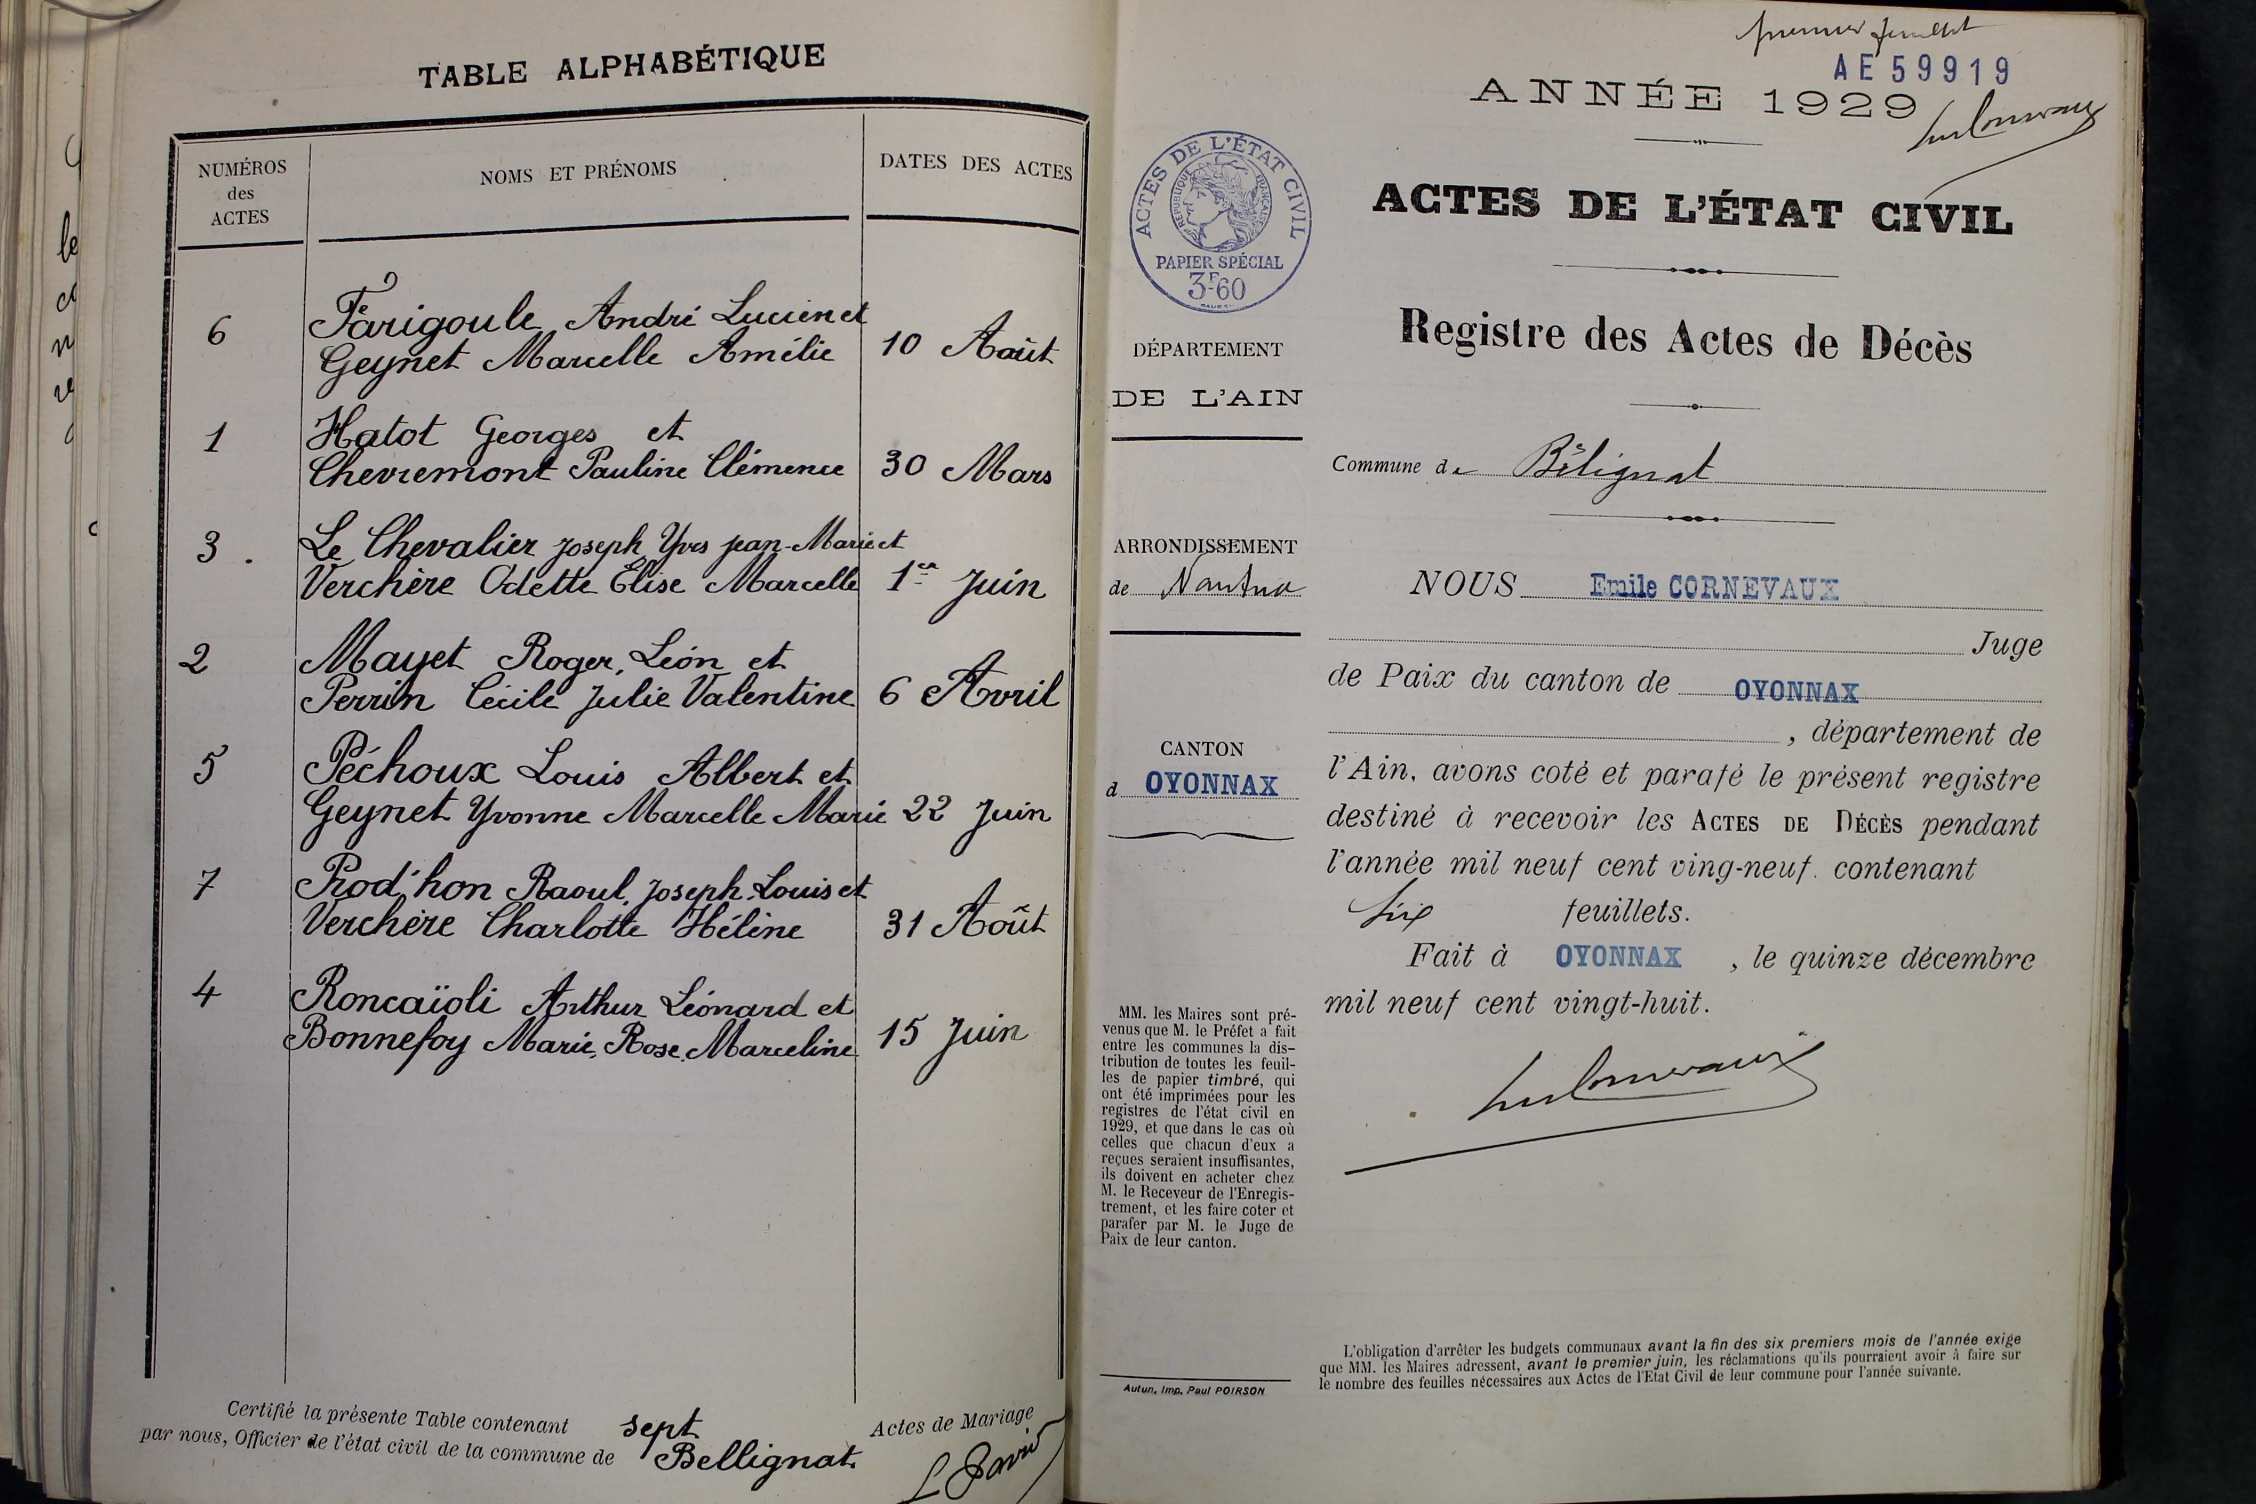 TABLE ALPHABÉTIQUE
NUMÉROS
des
ACTES
NOMS ET PRÉNOMS
DATES DES ACTES
6 Farigoule André Lucien et
Geynet Marcelle Amélie 10 Août
1 Hatot Georges et
Chevremont Pauline Clémence 30 Mars
3 Le Chevalier Joseph Yves Jean-Marie et
Verchère Odette Élise Marcelle 1er Juin
2 Mayet Roger, Léon et
Perrin Cécile Julie Valentine 6 Avril
5 Péchoux Louis Albert et
Geynet Yvonne Marcelle Marie 22 Juin
7 Prod'hon Raoul, Joseph, Louis et
Verchère Charlotte Hélène 31 Août
4 Roncaïoli Arthur Léonard et
Bonnefoy Marie, Rose, Marceline 15 Juin
Certifié la présente Table contenant sept Actes de Mariage
par nous, Officier de l'état civil de la commune de Bellignat.
premier feuillet
AE 59919
ANNÉE 1929
ACTES DE L'ÉTAT CIVIL
RÉPUBLIQUE FRANÇAISE
PAPIER SPÉCIAL
3F60
DÉPARTEMENT
DE L'AIN
ARRONDISSEMENT
de Nantua
CANTON
d OYONNAX
MM. les Maires sont pré-
venus que M. le Préfet a fait
entre les communes la dis-
tribution de toutes les feuil-
les de papier timbré, qui
ont été imprimées pour les
registres de l'état civil en
1929, et que dans le cas où
celles que chacun d'eux a
reçues seraient insuffisantes,
ils doivent en acheter chez
M. le Receveur de l'Enregis-
trement, et les faire coter et
parafer par M. le Juge de
Paix de leur canton.
Autun, Imp. Paul POIRSON
ACTES DE L'ÉTAT CIVIL
Registre des Actes de Décès
Commune de Bélignat
NOUS Emile CORNEVAUX
Juge
de Paix du canton de OYONNAX
, département de
l'Ain, avons coté et parafé le présent registre
destiné à recevoir les ACTES DE DÉCÈS pendant
l'année mil neuf cent ving-neuf. contenant
six feuillets.
Fait à OYONNAX , le quinze décembre
mil neuf cent vingt-huit.
L'obligation d'arrêter les budgets communaux avant la fin des six premiers mois de l'année exige
que MM. les Maires adressent, avant le premier juin, les réclamations qu'ils pourraient avoir à faire sur
le nombre des feuilles nécessaires aux Actes de l'Etat Civil de leur commune pour l'année suivante.